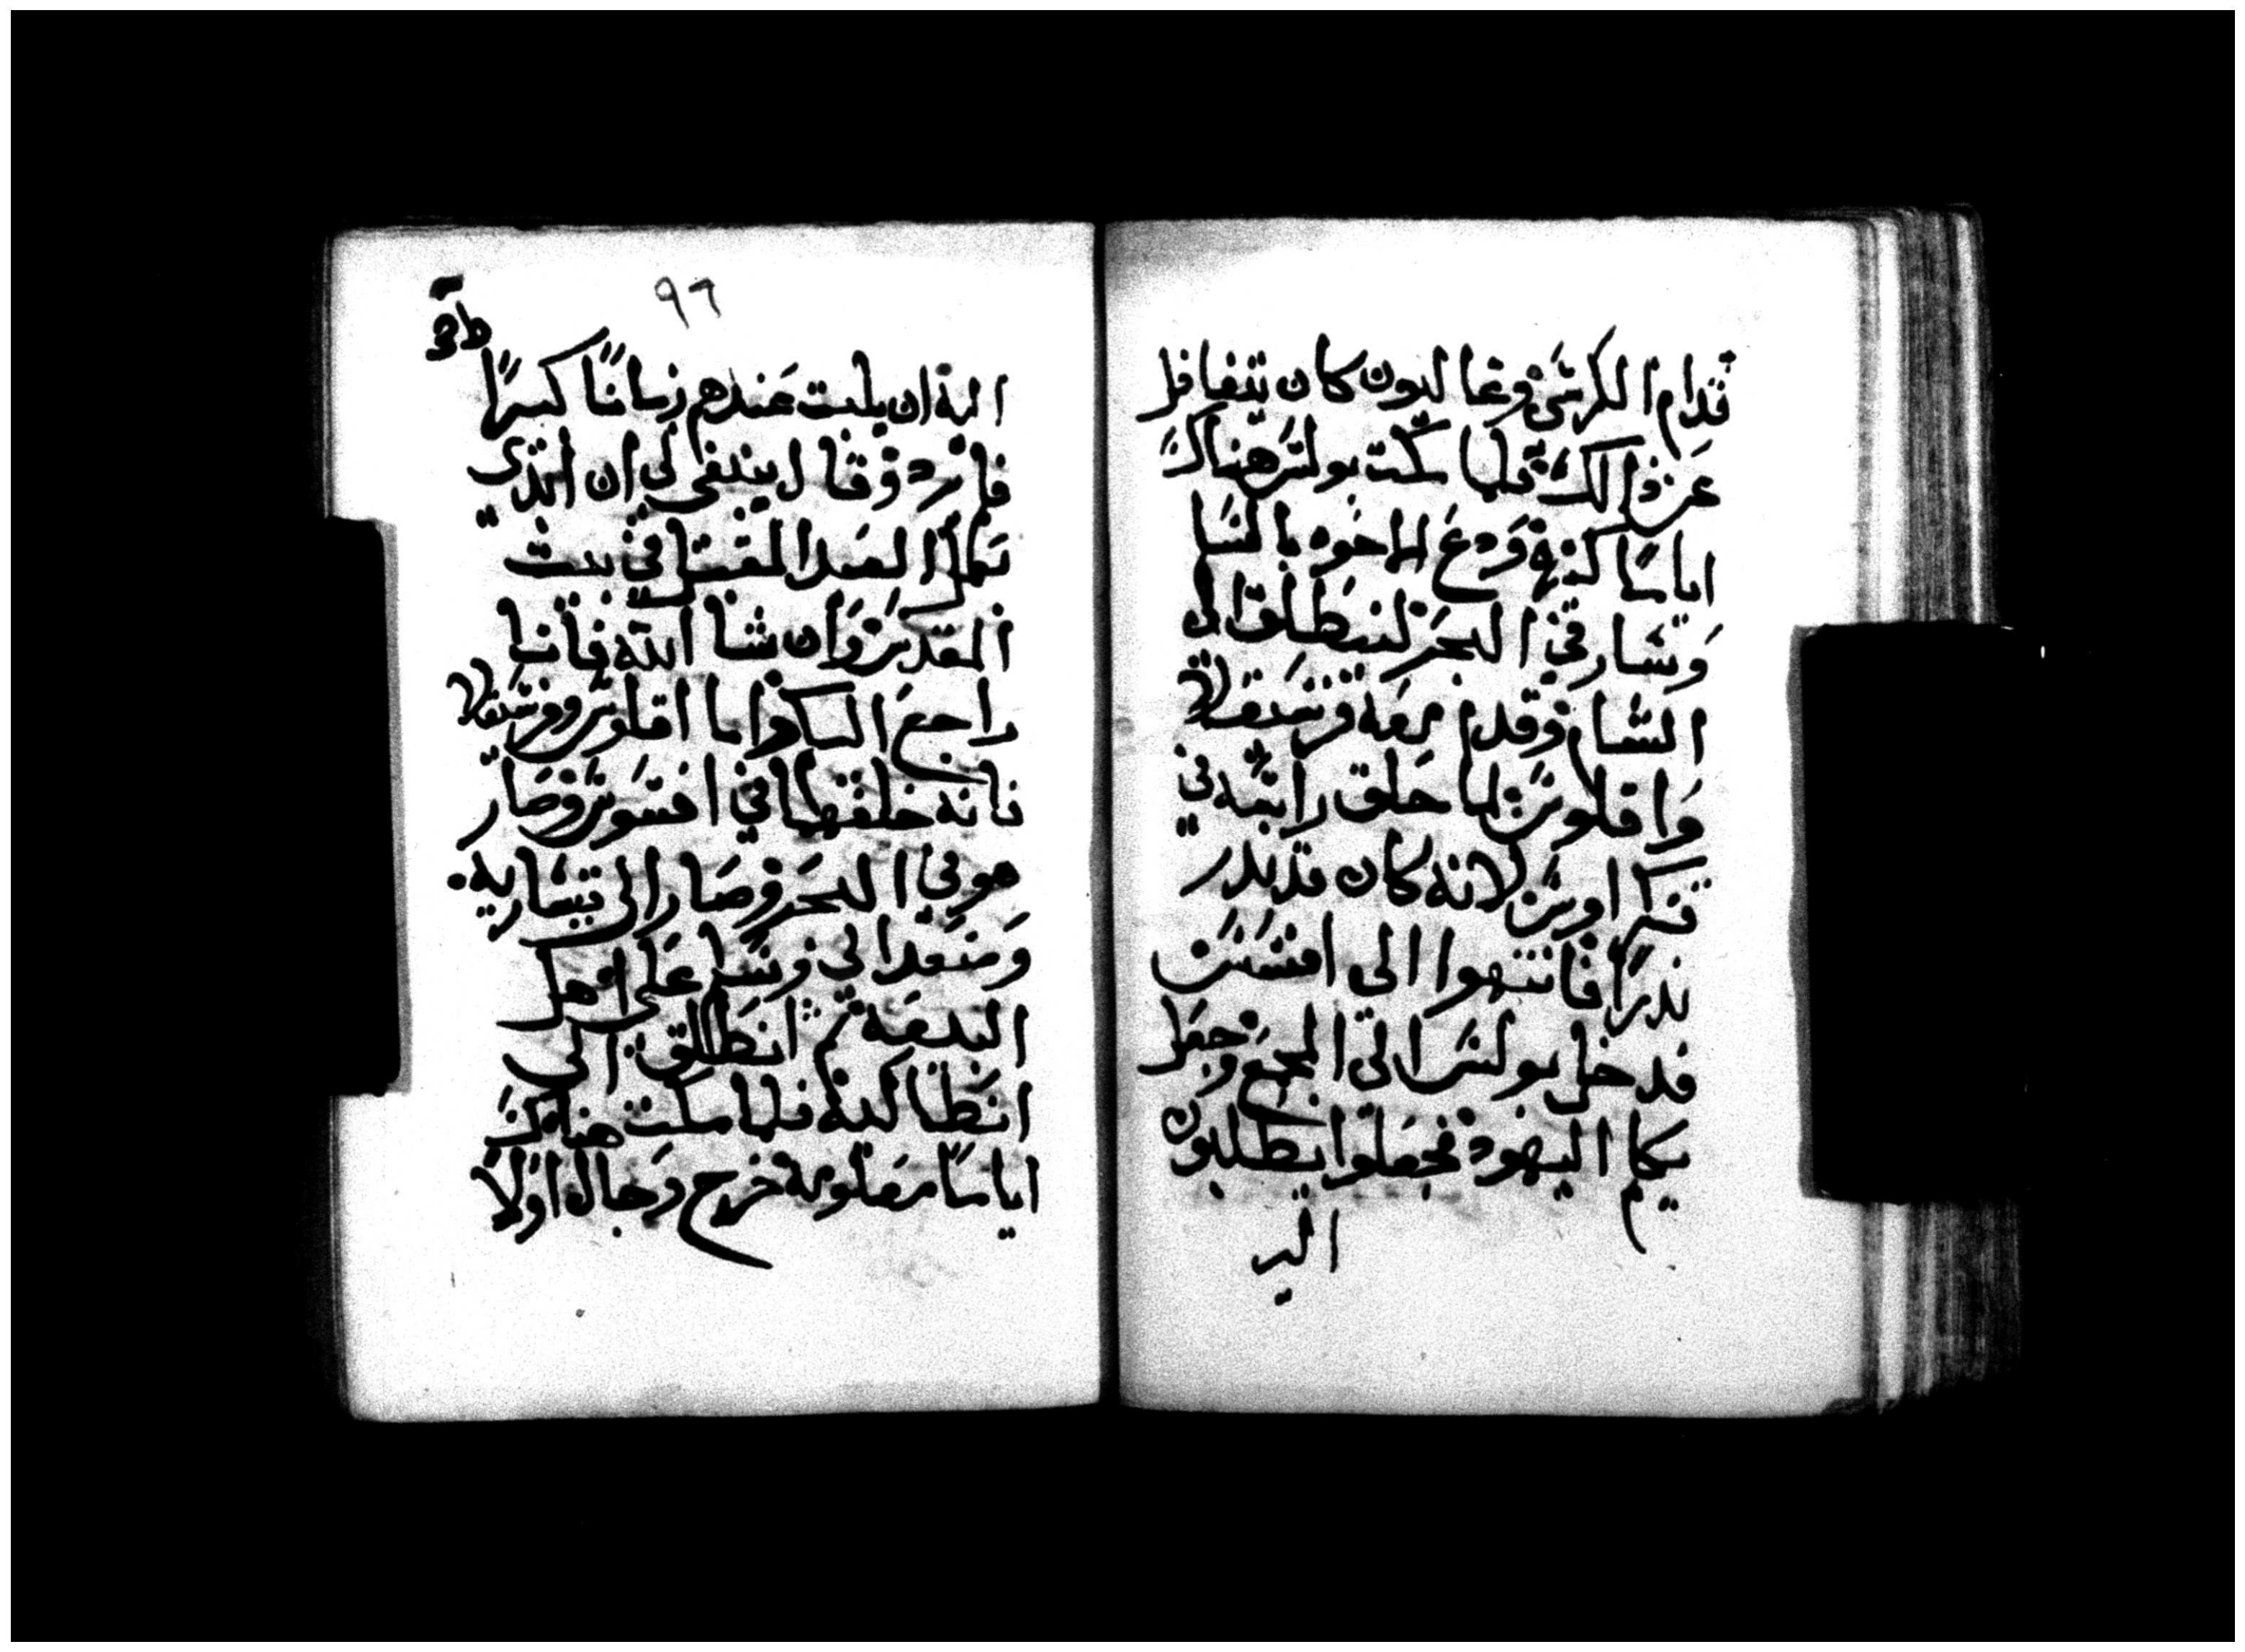 قدام الكرسي وغاليون كان يتغافل
عن ذالك فلما مكت بولس هناك
اياما كثيرة ودع الاخوه بالسلا
وسار في البحر لينطلق الى
الشام وقدم معه فرسقلا
واقلوس لما حلق راسه في
قنكراوس لانه كان قد ندر
ندرا فانتهوا الى افسس
فدخل بولس الى المجمع وجعل
يكلم اليهود فجعلوا يطلبون
اليه
٩٦
اليه ان يلبت عندهم زمانا كبيرا
فابرد وقال ينبغي لي ان
نكمل العيد المقبل في بيت
المقدس وان شا الله فانا
راجع اليكم واما اقلوس وفرسقلا
فانه خلفهما في افسوس وصار
هو في البحر وصار الى قيساريه
ومنعدا لي وسلم على اهل
البيعة ثم انطلق الى
انطاكية فلما مكت هناك
اياما معلومة خرج وجال اولا